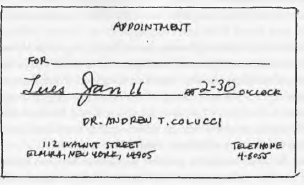 APPOINTMENT
FOR
Tues Jan 11 AT 2:30 O'CLOCK
DR. ANDREW T. COLUCCI
112 WALNUT STREET TELEPHONE
ELMIRA, NEW YORK, 14905 4-8055